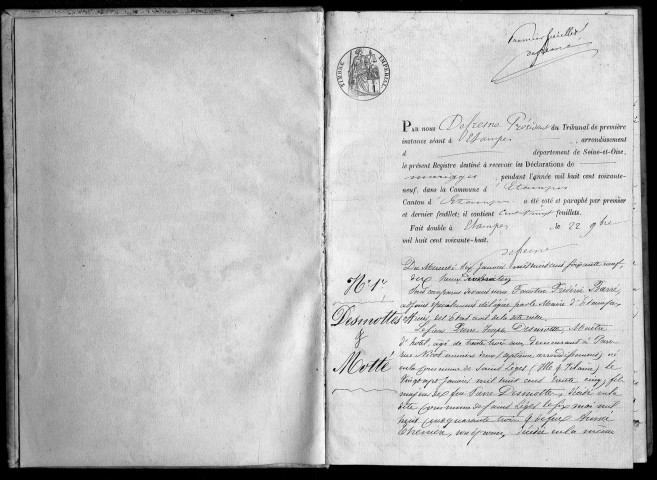 Premier feuillet
Defresne
TIMBRE IMPÉRIAL
PAR NOUS Defresne Président du Tribunal de première
instance séant à Etampes, arrondissement
d département de Seine-et-Oise,
le présent Registre destiné à recevoir les Déclarations de
mariages, pendant l'Année mil huit cent soixante-
neuf, dans la Commune d'Etampes
Canton d'Etampes a été coté et paraphé par premier
et dernier feuillet; il contient cent vingt feuillets.
Fait double à Etampes le 22 9bre
mil huit cent soixante-huit.
Defresne
N° 1er
Desmottes
&
Motté
Du Mercredi six Janvier mil huit cent soixante neuf,
dix heures
Sont comparus devant nous Faustin Frédéric
adjoint spécialement délégué par le Maire d'Etampes
de l'Etat civil de la dite ville
Le sieur Pierre Joseph Desmottes, Maître
d'hôtel, âgé de trente trois ans demeurant à Paris
rue Nicot numéro deux (septième arrondissement), né
en la Commune de Saint Léger (Ille & Vilaine) le
vingt sept Janvier mil huit cent trente cinq, fils
majeur de feu Pierre Desmottes, décédé en la
dite Commune de Saint Léger le six mai mil
huit cent quarante trois & de feue
Thérèse, son épouse, décédée en la même